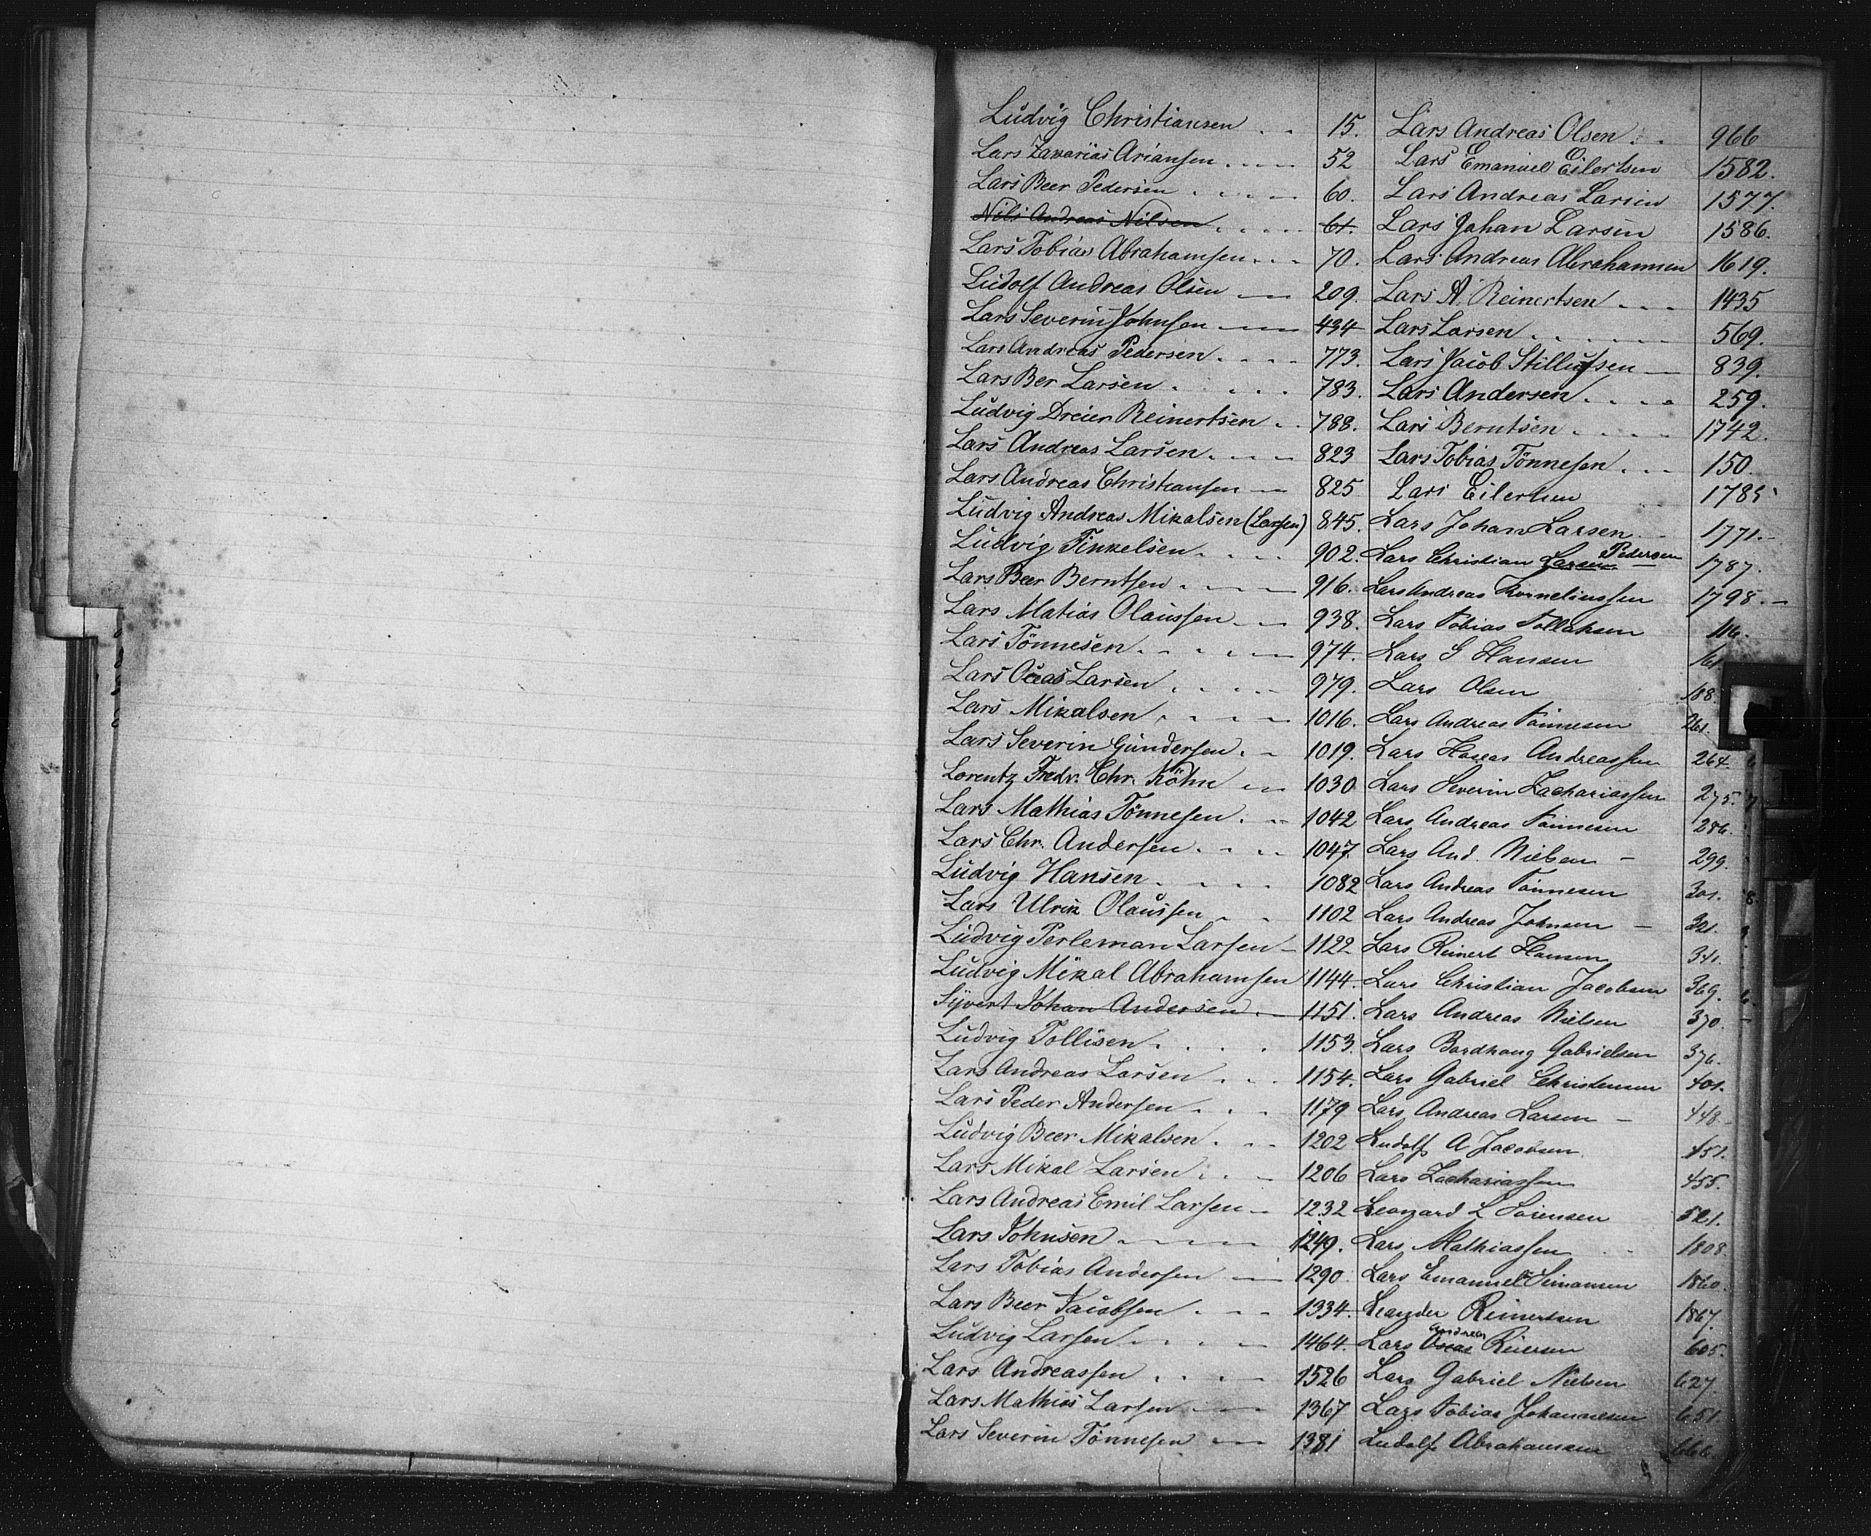 Ludvig Christiansen . . 15.
Lars Zavarias Ariansen . . . . 52
Lars Beer Pedersen . . . . 60.
Nils Andreas Nilsen . . . . 61.
Lars Tobias Abrahamsen . . . 70.
Ludolf Andreas Olsen 209.
Lars Severin Johnsen 434
Lars Andreas Pedersen . . . . 773.
Lars Ber Larsen . . . . 783.
Ludvig Dreier Reinertsen . . 788.
Lars Andreas Larsen . . . . 823
Lars Andreas Christiansen 825
Ludvig Andreas Mikalsen (Larsen) 845.
Ludvig Finkelsen . . . . 902.
Lars Beer Berntsen . . . . 916.
Lars Matias Olaussen . . . 938.
Lars Tönnesen . . . . 974.
Lars Oreas Larsen . . . . 979.
Lars Mikalsen . . . . 1016.
Lars Severin Gundersen . . 1019.
Lorentz Fredr. Chr. Köhn 1030
Lars Mathias Tönnesen . . . 1042
Lars Chr. Andersen . . . . 1047
Ludvig Hansen . . . . 1082
Lars Ulrik Olaussen . . 1102
Ludvig Perleman Larsen – 1122
Ludvig Mikal Abrahamsen 1144.
Syvert Johan Andersen . 1151.
Ludvig Tollisen . . . . 1153.
Lars Andreas Larsen . . . 1154.
Lars Peder Andersen . . . 1179
Ludvig Beer Mikalsen . . . 1202
Lars Mikal Larsen . . . 1206
Lars Andreas Emil Larsen – 1232
Lars Johnsen . . . . 1249.
Lars Tobias Andersen 1290.
Lars Beer Jacobsen . . . 1334.
Ludvig Larsen . . . . 1464.
Lars Andreassen . . . . 1526
Lars Mathias Larsen . . . 1367
Lars Severin Tönnesen 1381
Lars Andreas Olsen . . 966
Lars Emanuel Eilertsen 1582.
Lars Andreas Larsen 1577.
Lars Johan Larsen 1586.
Lars Andreas Abrahamsen 1619.
Lars A. Reinertsen . . . 1435
Lars Larsen . . . . 569.
Lars Jacob Stillufsen – 839.
Lars Andersen . . . . 259.
Lars Berntsen . . . . 1742.
Lars Tobias Tönnesen . . . 150.
Lars Eilertsen 1785
Lars Johan Larsen . . 1771.–
Lars Christian Larsen Pedersen 1787.
Lars Andreas Korneliussen 1798.–
Lars Tobias Tollaksen 116.
Lars G Hansen 161
Lars Olsen 188.
Lars Andreas Tönnesen 261.
Lars Hoseas Andreassen 264.
Lars Severin Zachariassen 275.
Lars Andreas Tönnesen 286.
Lars And. Nielsen – 299.
Lars Andreas Tönnesen 301.
Lars Andreas Johnsen – 321.
Lars Reinert Hansen 341.
Lars Christian Jacobsen 369.
Lars Andreas Nielsen 370.
Lars Bordhaug Gabrielsen 376.
Lars Gabriel Christensen 401.
Lars Andreas Larsen – 448.
Ludolf A Jacobsen 451.
Lars Zachariassen 455.
Leonard L Sörensen 521.
Lars Mathiassen . . 1808.
Lars Emanuel Simonsen 1860.
Leander Reinertsen 1867.
Lars Oreas Andreas Reiersen 605.
Lars Gabriel Nielsen 627.
Lars Tobias Johannesen 651.
Ludolf Abrahamsen 666.